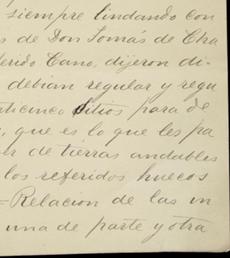 siempre lindando con
s de Don Tomás de Cha
ferido Cano, dijeron di-
debian regular y regu
nticinco sitios para de
, que es lo que les pa
er de tierras andables
los referidos huecos
=Relacion de las in
una de parte y otra